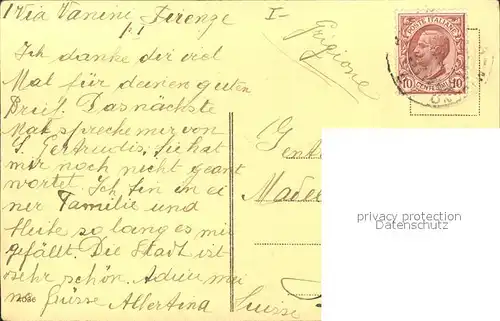 1 Via Vanini, Firenze
p. 1
I-
Grigione
POSTE ITALIANE
10 CENTESIMI 10
Ich danke dir viel
Mal für deinen guten
Brief. Das nächste
Mal spreche mir von
S. Gertrudis, sie hat
mir noch nicht geant
wortet. Ich bin in ei
ner Familie und
bleibe so lang es mir
gefällt. Die Stadt ist
sehr schön. Adieu mei
ne Grüsse Albertina
Gent
Made
Suisse
privacy protection
Datenschutz